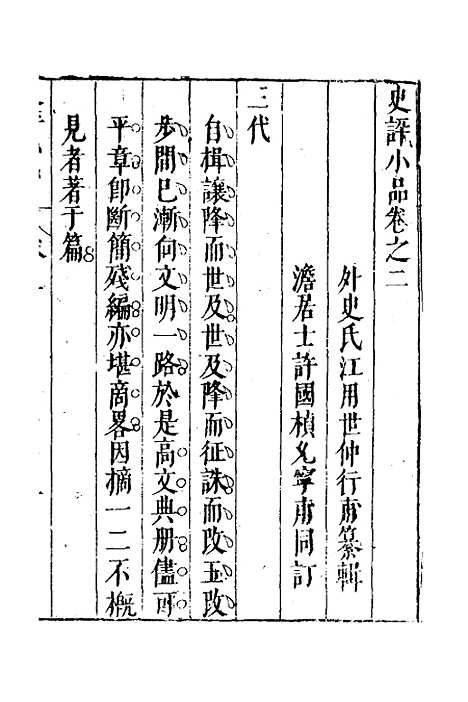 史評小品卷之二
外史氏江用世仲行甫纂輯
澹居士許國楨允寧甫同訂
三代
自楫讓降而世及世及降而征誅而改玉改
步間已漸向文明一路於是高文典册儘可
平章卽斷簡殘編亦堪商畧因摘一二不槪
見者著于篇